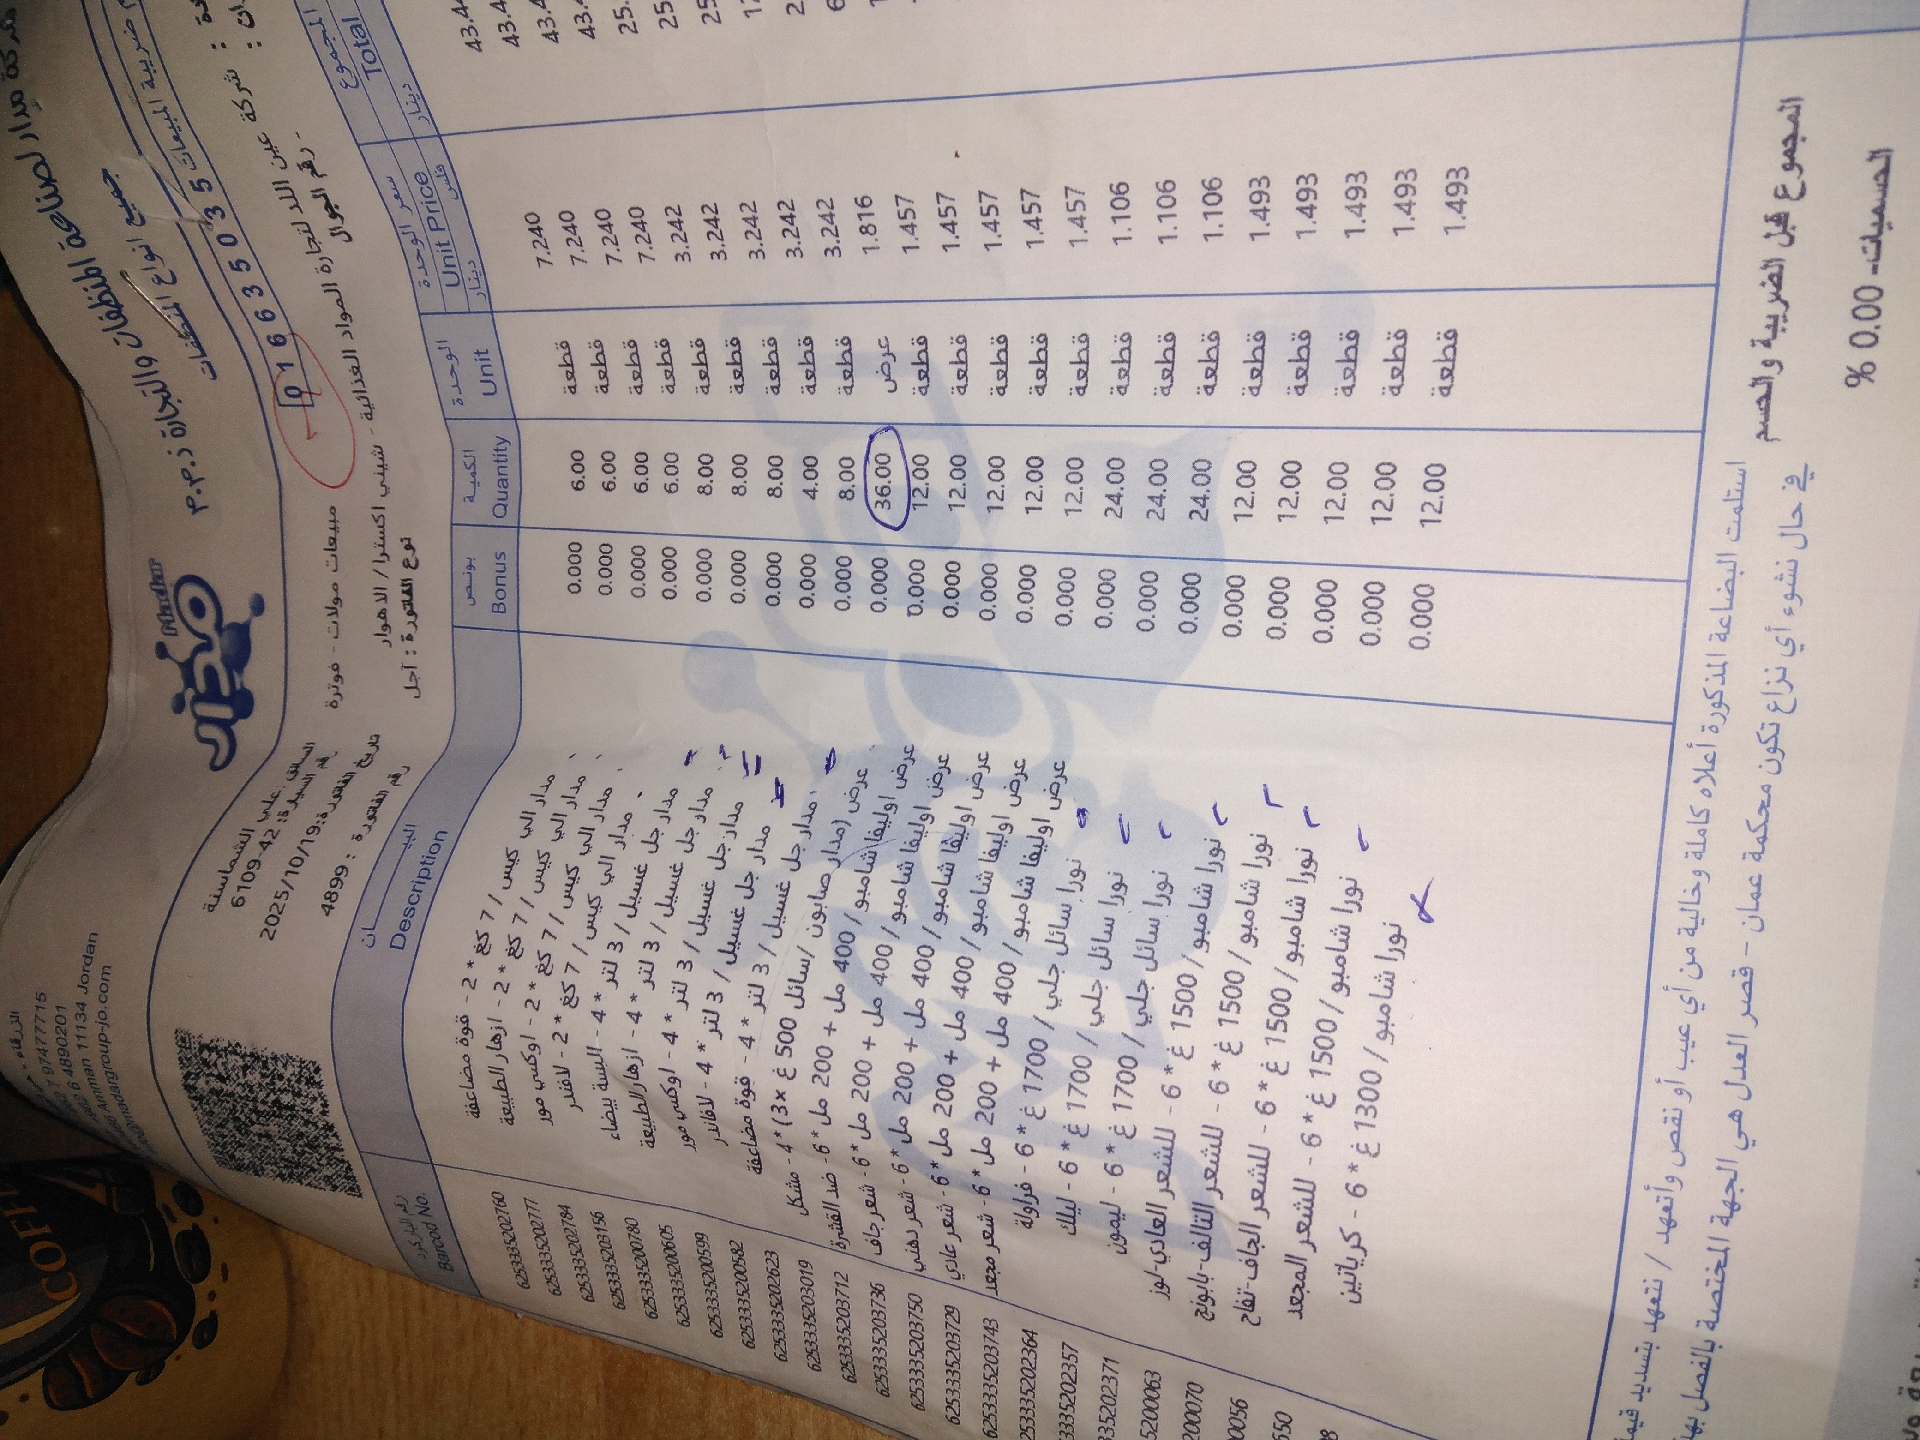 شركة مدار لصناعة المنظفات
جميع انواع المنظفات والتجارة ذ.م.م
ضريبة المبيعات
0 1 6 6 3 5 0 3 5
مدار
Madar
الزرقاء
7 97477715
6 4890201
Amman 11134 Jordan
madargroup-jo.com
السائق: علي الشماسنة
رقم السيارة: 42-6109
تاريخ الفاتورة: 2025/10/19
رقم الفاتورة : 4899
شركة عين اللد لتجارة المواد الغذائية - شيني اكسترا / الاهوار
رقم الجوال
مبيعات مولات - فوترة
نوع الفاتورة : آجل
رقم الباركود البيـــــان بونص الكمية الوحدة سعر الوحدة المجموع
Barcod No. Description Bonus Quantity Unit Unit Price Total
دينار فلس دينار
6253335202760 مدار الي كيس / 7 كغ * 2 - قوة مضاعفة 0.000 6.00 قطعة 7.240 43.4
6253335202777 مدار الي كيس / 7 كغ * 2 - ازهار الطبيعة 0.000 6.00 قطعة 7.240 43.4
6253335202784 مدار الي كيس / 7 كغ * 2 - اوكسي مور 0.000 6.00 قطعة 7.240 43.4
6253335203156 مدار الي كيس / 7 كغ * 2 - لافندر 0.000 6.00 قطعة 7.240 43.
6253335200780 مدار جل غسيل / 3 لتر * 4 - البسة بيضاء 0.000 8.00 قطعة 3.242 25.
6253335200605 مدار جل غسيل / 3 لتر * 4 - ازهار الطبيعة 0.000 8.00 قطعة 3.242 25
6253335200599 مدار جل غسيل / 3 لتر * 4 - اوكسي مور 0.000 8.00 قطعة 3.242 25
6253335200582 مدار جل غسيل / 3 لتر * 4 - لافاندر 0.000 4.00 قطعة 3.242 12
6253335202623 مدار جل غسيل / 3 لتر * 4 - قوة مضاعفة 0.000 8.00 قطعة 3.242 2
6253335203019 عرض (مدار صابون /سائل 500 غ x3) *4 - مشكل 0.000 36.00 عرض 1.816 6
6253335203712 عرض اوليفا شامبو / 400 مل + 200 مل *6 - ضد القشرة 0.000 12.00 قطعة 1.457
6253335203736 عرض اوليفا شامبو / 400 مل + 200 مل *6 - شعر جاف 0.000 12.00 قطعة 1.457
6253335203750 عرض اوليفا شامبو / 400 مل + 200 مل *6 - شعر دهني 0.000 12.00 قطعة 1.457
6253335203729 عرض اوليفا شامبو / 400 مل + 200 مل *6 - شعر عادي 0.000 12.00 قطعة 1.457
6253335203743 عرض اوليفا شامبو / 400 مل + 200 مل *6 - شعر مجعد 0.000 12.00 قطعة 1.457
253335202364 نورا سائل جلي / 1700 غ * 6 - فراولة 0.000 24.00 قطعة 1.106
3335202357 نورا سائل جلي / 1700 غ * 6 - ليلك 0.000 24.00 قطعة 1.106
335202371 نورا سائل جلي / 1700 غ * 6 - ليمون 0.000 24.00 قطعة 1.106
5200063 نورا شامبو / 1500 غ * 6 - للشعر العادي-لوز 0.000 12.00 قطعة 1.493
200070 نورا شامبو / 1500 غ * 6 - للشعر التالف-بابونج 0.000 12.00 قطعة 1.493
00056 نورا شامبو / 1500 غ * 6 - للشعر الجاف-تفاح 0.000 12.00 قطعة 1.493
650 نورا شامبو / 1500 غ * 6 - للشعر المجعد 0.000 12.00 قطعة 1.493
8 نورا شامبو / 1300 غ * 6 - كرياتين 0.000 12.00 قطعة 1.493
استلمت البضاعة المذكورة أعلاه كاملة وخالية من أي عيب أو نقص وأتعهد / نتعهد بتسديد قيمة
في حال نشوء أي نزاع تكون محكمة عمان - قصر العدل هي الجهة المختصة بالفصل بها
المجموع قبل الضريبة والحسم
الحسميات- 0.00 %
COFF